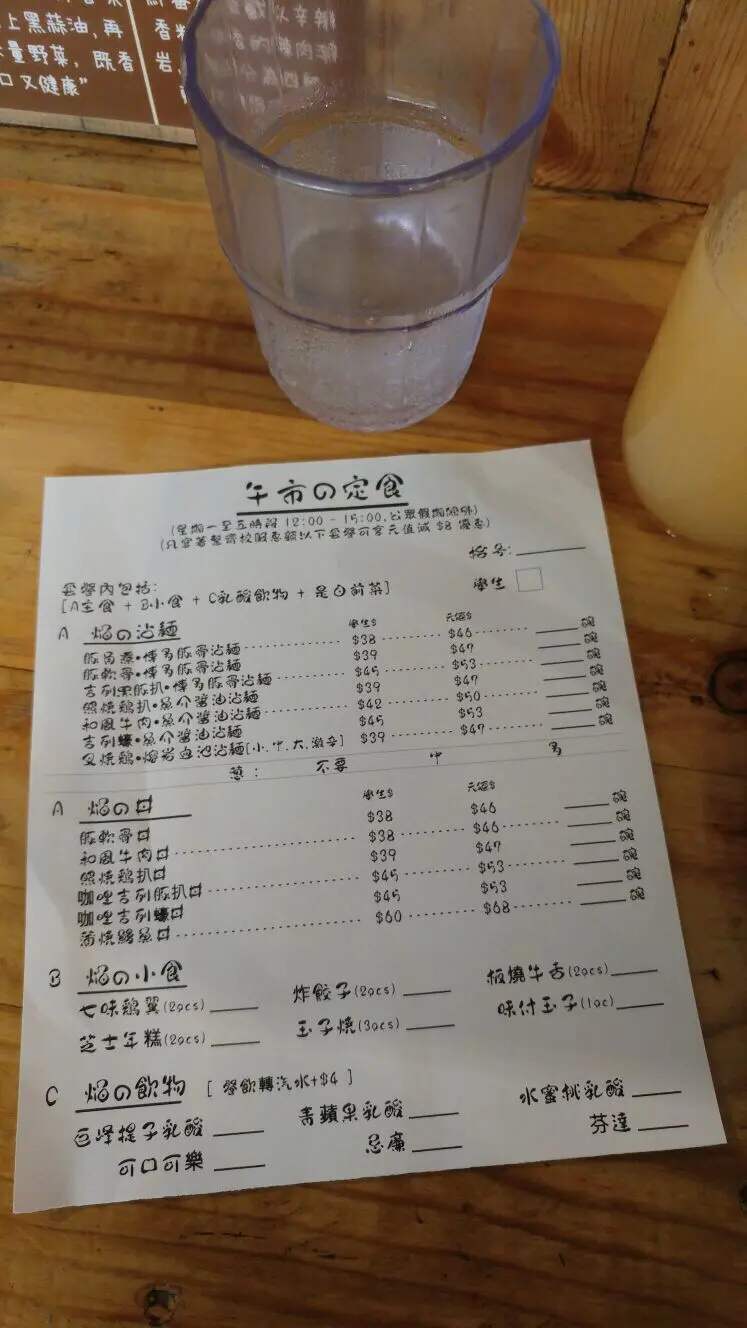 上黑蒜油,再
量野菜, 既香
口又健康"
午市の定食
(星期一至五時段 12:00 - 15:00,公眾假期除外)
(凡穿著整齊校服惠顧以下套餐可享元值減 $8 優惠)
枱号: ______
套餐內包括:
[A主食 + B小食 + C乳酸飲物 + 是日前菜]
學生
A 焰の沾麵 學生$ 元值$
豚角煮•博多豚骨沾麵 $38 $46 ____碗
豚軟骨•博多豚骨沾麵 $39 $47 ____碗
吉列黑豚扒•博多豚骨沾麵 $45 $53 ____碗
照燒鶏扒•魚介醬油沾麵 $39 $47 ____碗
和風牛肉•魚介醬油沾麵 $42 $50 ____碗
吉列蠔•魚介醬油沾麵 $45 $53 ____碗
叉燒鶏•熔岩血池沾麵[小.中.大.激辛] $39 $47 ____碗
蔥: 不要 中 多
A 焰の丼 學生$ 元值$
豚軟骨丼 $38 $46 ____碗
和風牛肉丼 $38 $46 ____碗
照燒鶏扒丼 $39 $47 ____碗
咖哩吉列豚扒丼 $45 $53 ____碗
咖哩吉列蠔丼 $45 $53 ____碗
蒲燒鰻魚丼 $60 $68 ____碗
B 焰の小食
七味鶏翼(2pcs)____ 炸餃子(2pcs)____ 板燒牛舌(2pcs)____
芝士年糕(2pcs)____ 玉子燒(3pcs)____ 味付玉子(1pc)____
C 焰の飲物 [ 餐飲轉汽水+$4 ]
巨峰提子乳酸 ____ 青蘋果乳酸 ____ 水蜜桃乳酸 ____
可口可樂 ____ 忌廉 ____ 芬達 ____